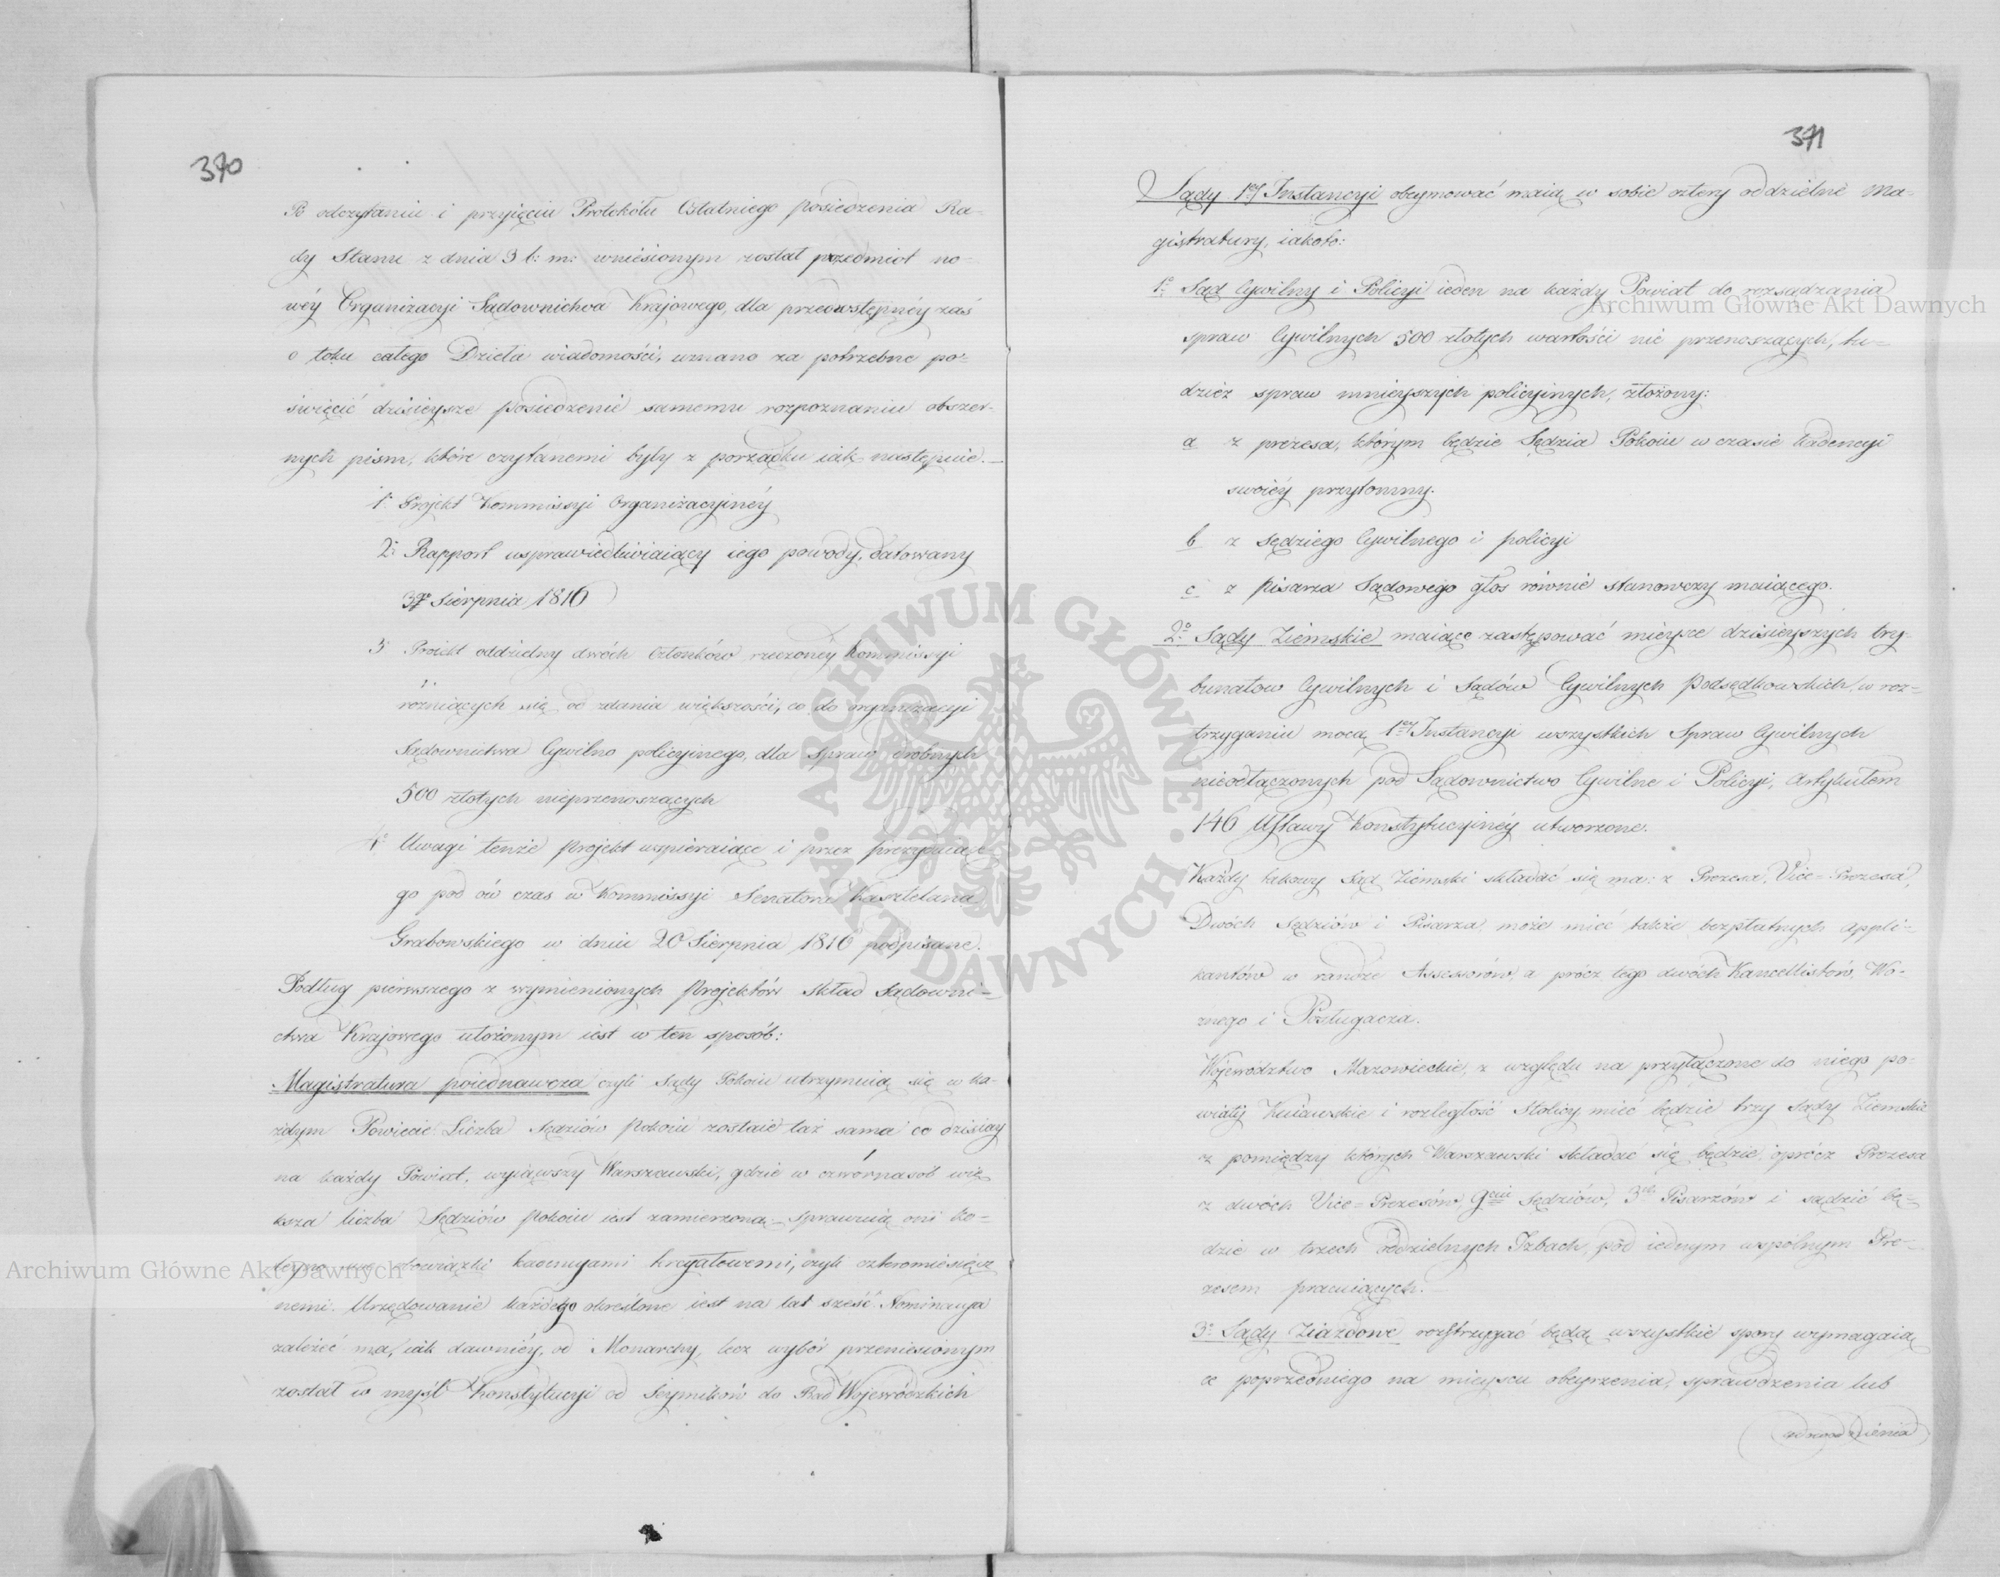 370
Po odczytaniu i przyięciu Protokółu Ostatniego posiedzenia Ra-
dy Stanu z dnia 3 b: m: wniesionym został przedmiot no-
wéy Organizacyi Sądownictwa Krajowego, dla przedwstępnéy zaś
o toku całego Dzieła wiadomości, uznano za potrzebne po-
święcić dzisieysze posiedzenie samemu rozpoznaniu obszer-
nych pism, które czytanemi były z porządku iak następuie.—
1° Projekt Kommissyi Organizacyinéy
2° Rapport usprawiedliwiaiący iego powody, datowany
Sierpnia 1816
3 Projekt oddzielny dwóch Członków rzeczoney Kommissyi
różniących się od zdania większości, co do organizacyi
Sądownictwa Cywilno policyinego, dla spraw drobnych
500 złotych nieprzenoszących
4° Uwagi tenże projekt wspieraiące i przez prezyduiące
go pod ów czas w Kommissyi Senatora Kasztelana
Grabowskiego w dniu 20 Sierpnia 1816 podpisane.
Podług pierwszego z wymienionych projektów skład Sądowni-
ctwa Krajowego ułożonym iest w ten sposób:
Magistratura poiednawcza czyli Sądy Pokoiu utrzymuią się w ka-
żdym Powiecie Liczba Sędziów Pokoiu zostaie taż sama co dzisiay
na każdy Powiat, wyiąwszy Warszawski, gdzie w czwórnasób wię
ksza liczba Sędziów Pokoiu iest zamierzoną – sprawuią oni ko-
leyno swe obowiązki kadencyami kwartałowemi, czyli czteromiesięcz
nemi. Urzędowanie każdego określone iest na lat sześć. Nominacya
zależeć ma, iak dawniéy, od Monarchy, lecz wybór przeniesionym
został w myśl Konstytucyi od Seymików do Rad Woiewódzkich
371
Sądy 1ey Instancyi obeymować maią w sobie cztery oddzielne Ma-
gistratury, iakoto:
1° Sąd Cywilny i Policyi ieden na każdy Powiat do rozsądzania
spraw Cywilnych 500 złotych wartości nie przenoszących, tu-
dzież spraw mnieyszych policyinych, złożony:
a z prezesa, którym będzie Sędzia Pokoiu w czasie kadencyi
swoiéy przytomny.
b z Sędziego Cywilnego i policyi
c z Pisarza Sądowego głos równie stanowczy maiącego.
2° Sądy Ziemskie maiące zastępować mieysce dzisieyszych try-
bunałów Cywilnych i Sądów Cywilnych Podsędkowskich, w roz-
trzyganiu mocą 1ey Instancyi wszystkich Spraw Cywilnych
nieodłączonych pod Sądownictwo Cywilne i Policyi, Artykułem
146 Ustawy Konstytucyinéy utworzone.
Każdy takowy Sąd Ziemski składać się ma: z Prezesa, Vice-Prezesa,
Dwóch Sędziów i Pisarza może mieć także bezpłatnych appli-
kantów w randze Assessorów, a prócz tego dwóch Kancellistów, Wo-
znego i Posługacza.
Województwo Mazowieckie, z względu na przyłączone do niego po-
wiaty Kuiawskie i rozległość Stolicy, mieć będzie trzy Sądy Ziemskie
z pomiędzy których Warszawski składać się będzie, oprócz Prezesa
z dwóch Vice-Prezesów, 9ciu Sędziów, 3ch Pisarzów i sądzić bę-
dzie w trzech oddzielnych Izbach, pod iednym wspólnym Pre-
zesem pracuiących.—
3° Sądy Ziazdowe rozstrzygać będą wszystkie spory wymagaią
ce poprzedniego na mieyscu obeyrzenia, sprawdzenia lub
Archiwum Główne Akt Dawnych
Archiwum Główne Akt Dawnych
ARCHIWUM GŁÓWNE · AKT DAWNYCH ·